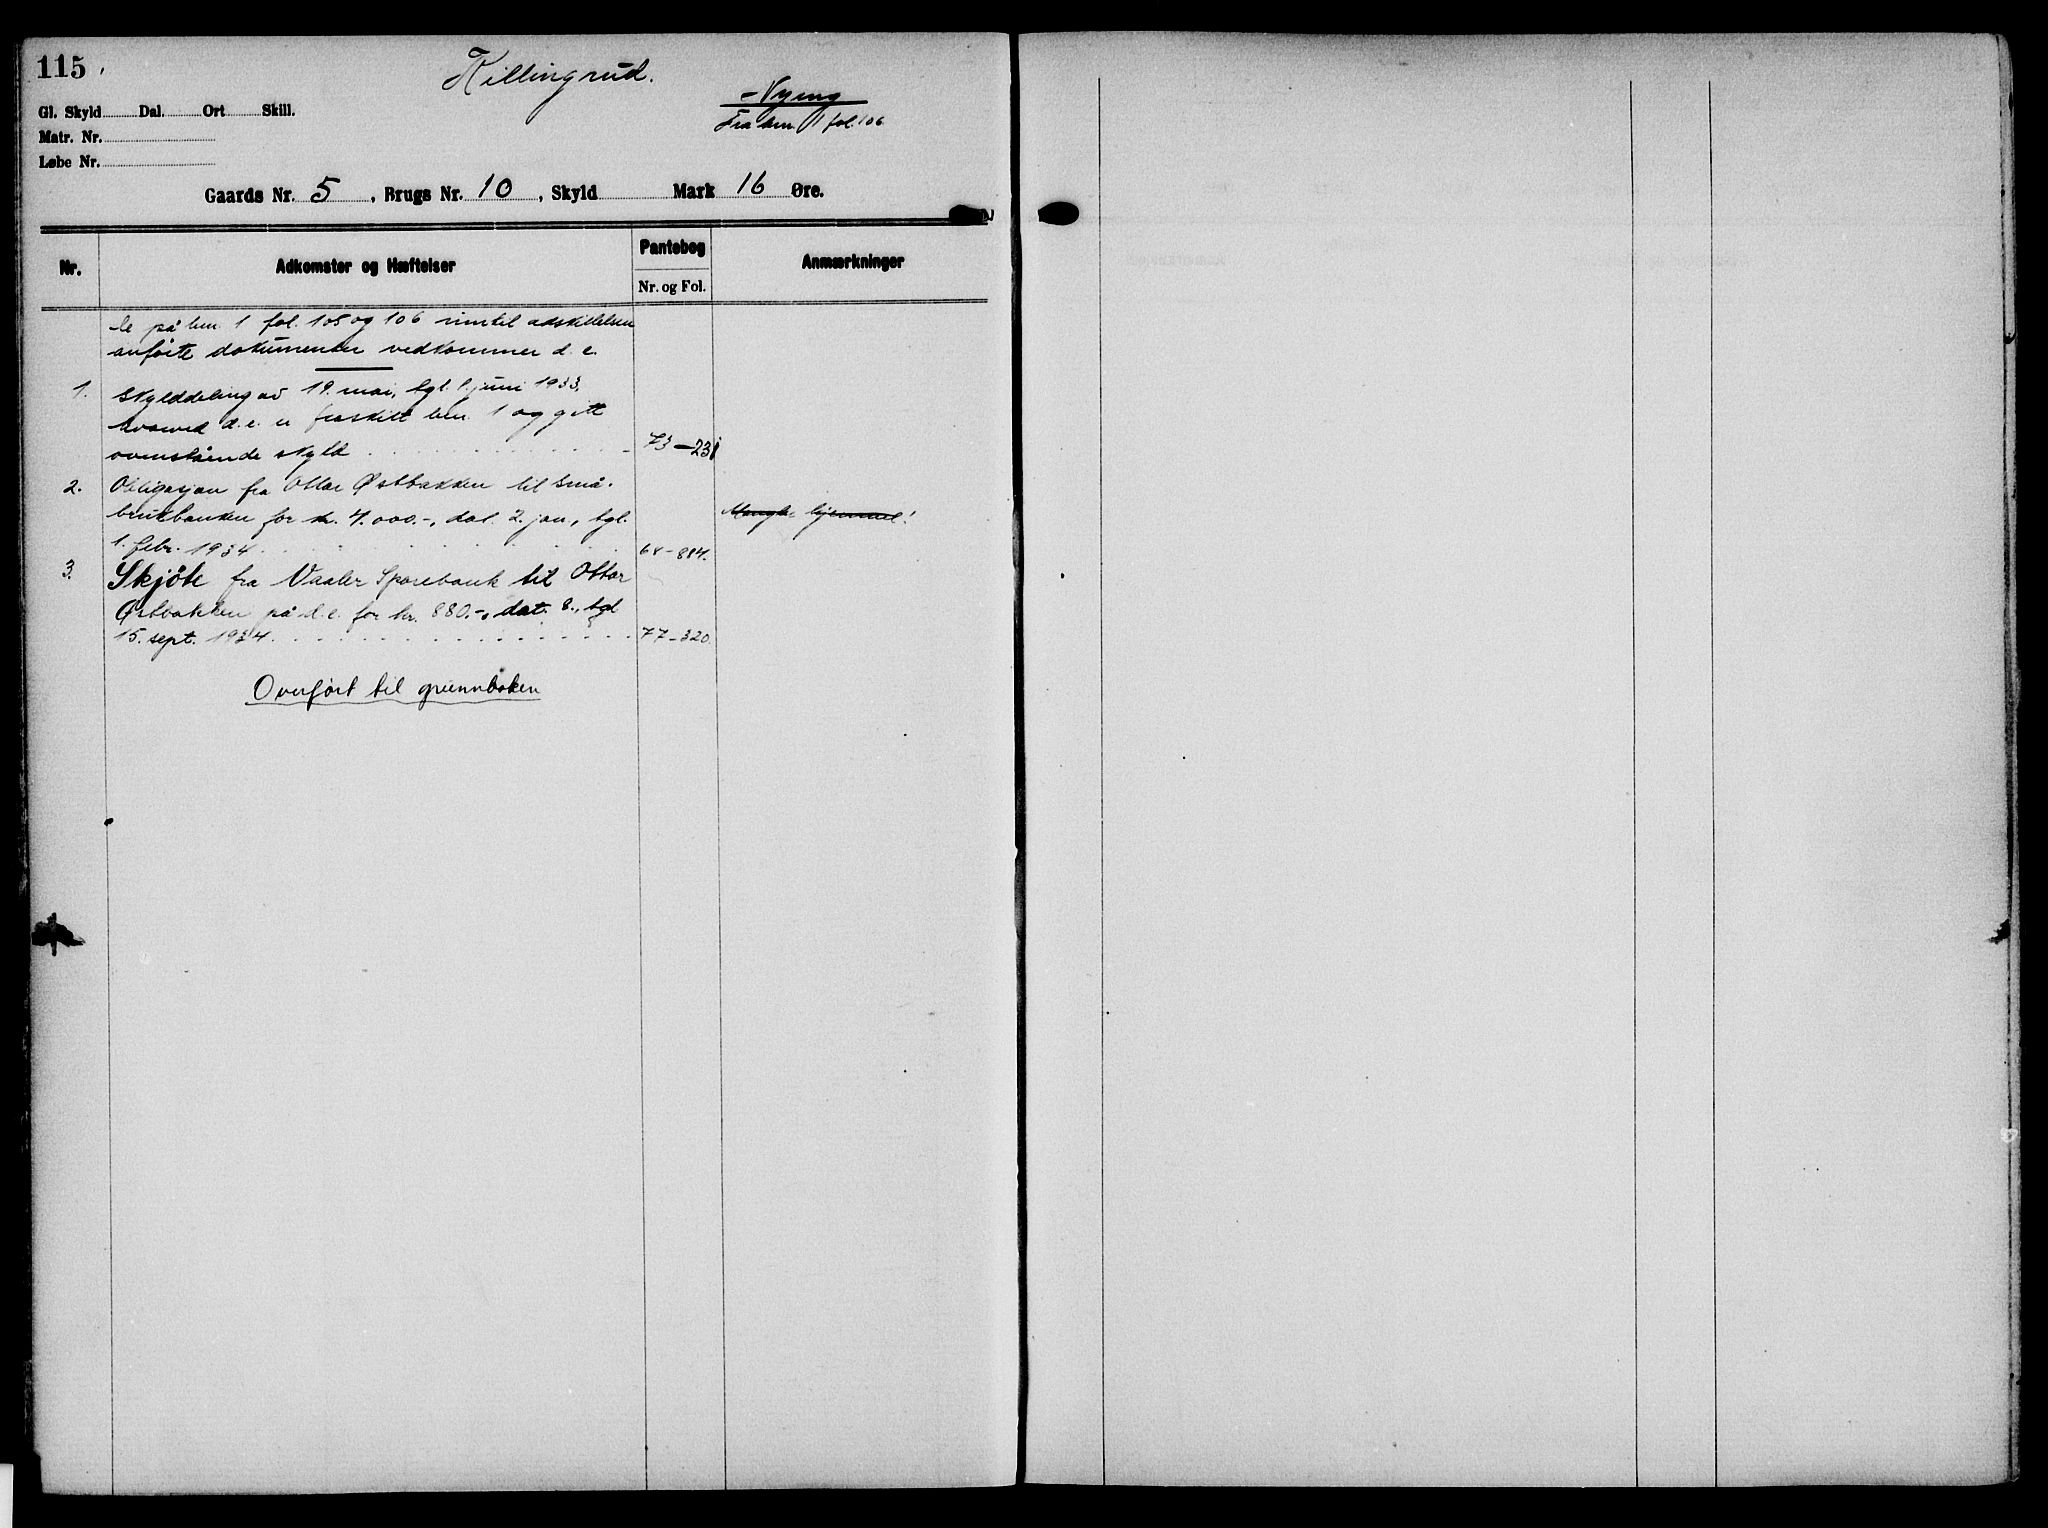 115
Killingrud.
Nyeng
Fra brn. 1 fol. 106
Gl. Skyld Dal. Ort Skill.
Matr. Nr.
Løbe Nr.
Gaards Nr. 5, Brugs Nr. 10, Skyld Mark 16 Øre.
Nr. Adkomster og Hæftelser Pantebog Nr. og Fol. Anmærkninger
De på brn. 1 fol. 105 og 106 inntil adskillelsen
anførte dokumenter vedkommer d. e.
1. Skylddeling av 19. mai, tgl. 1. juni 1933,
hvorved d. e. er fraskilt brn. 1 og gitt
ovenstående skyld 73-231
2. Obligasjon fra Ottar Østbakken til Små-
brukbanken for kr. 4.000.-, dat. 2. jan., tgl. Mangler hjemmel!
1. febr. 1934 68-884.
3. Skjøte fra Vaaler Sparebank til Ottar
Østbakken på d. e. for kr. 880.-, dat. 8., tgl
15. sept. 1934 77-320.
Overført til grunnboken